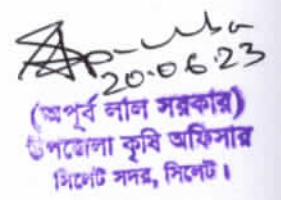 20.06.23
(অপূর্ব লাল সরকার)
উপজেলা কৃষি অফিসার
সিলেট সদর, সিলেট।